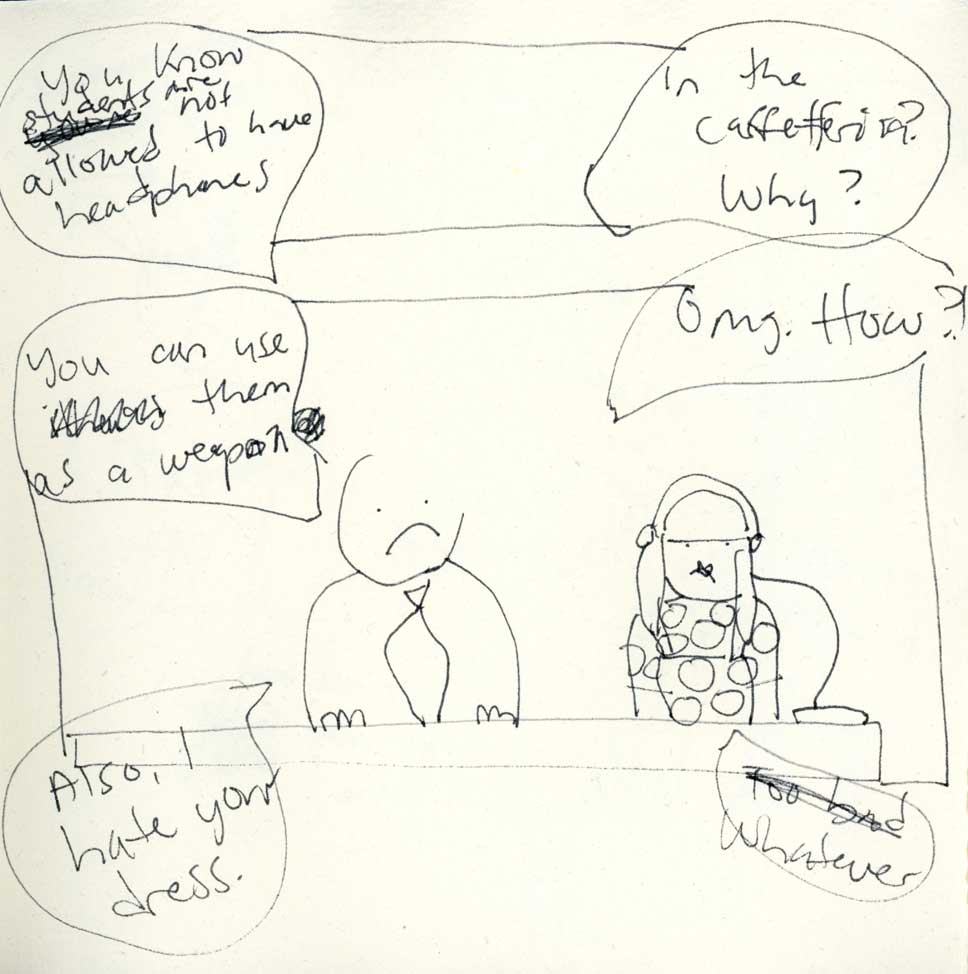 You know
students are
not
allowed to have
headphones
In the
caffetferia?
Why?
You can use
them
as a weapon
Omg. How?!
Also, I
hate your
dress.
Too bad
Whatever